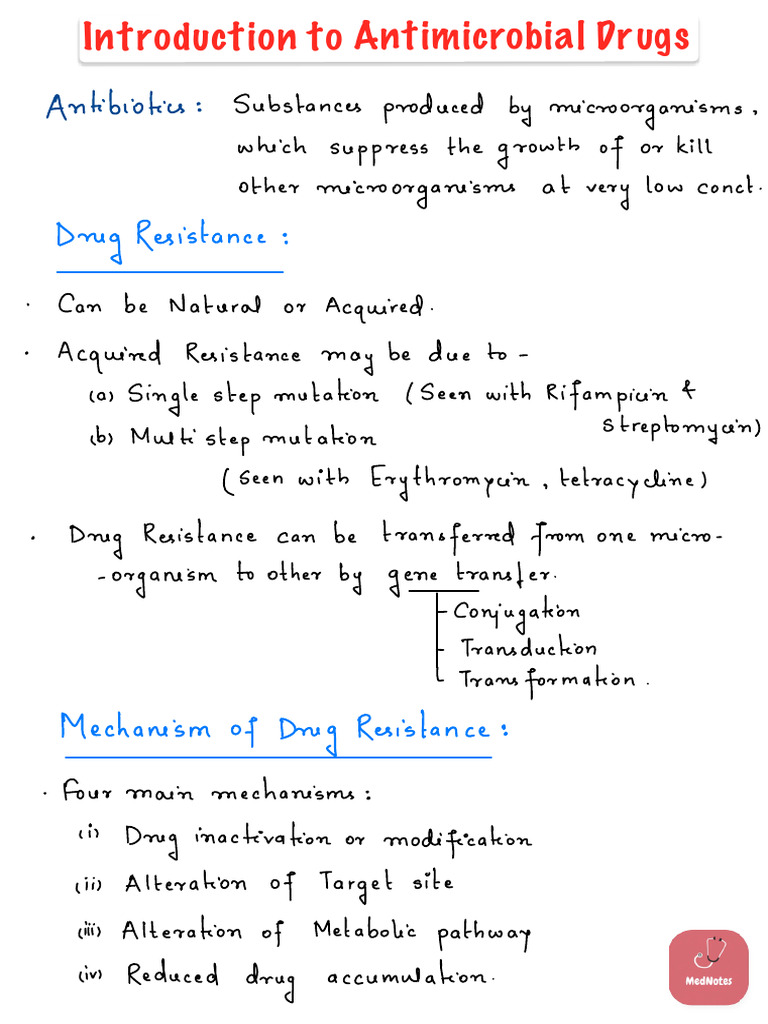 Introduction to Antimicrobial Drugs
Antibiotics : Substances produced by microorganisms,
which suppress the growth of or kill
other microorganisms at very low conct.
Drug Resistance :
· Can be Natural or Acquired.
· Acquired Resistance may be due to -
(a) Single step mutation (Seen with Rifampicin &
Streptomycin)
(b) Multi step mutation
(Seen with Erythromycin, tetracycline)
· Drug Resistance can be transferred from one micro-
-organism to other by gene transfer.
Conjugation
Transduction
Transformation.
Mechanism of Drug Resistance :
· Four main mechanisms :
(i) Drug inactivation or modification
(ii) Alteration of Target site
(iii) Alteration of Metabolic pathway
(iv) Reduced drug accumulation.
MedNotes